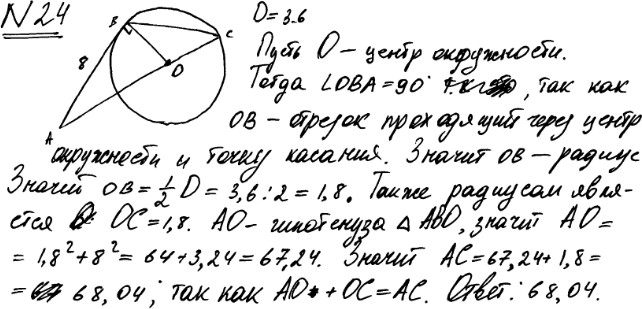 N24
B
C
8
O
A
D=3.6
Пусть О – центр окружности.
Тогда ∠OBA=90°, так как
OB – отрезок проходящий через центр
окружности и точку касания. Значит OB – радиус
Значит OB=½D=3,6:2=1,8. Также радиусом явля-
ется OC=1,8. AO – гипотенуза △ABO, значит AO=
=1,8²+8²=64+3,24=67,24. Значит AC=67,24+1,8=
=68,04; так как AO+OC=AC. Ответ: 68,04.